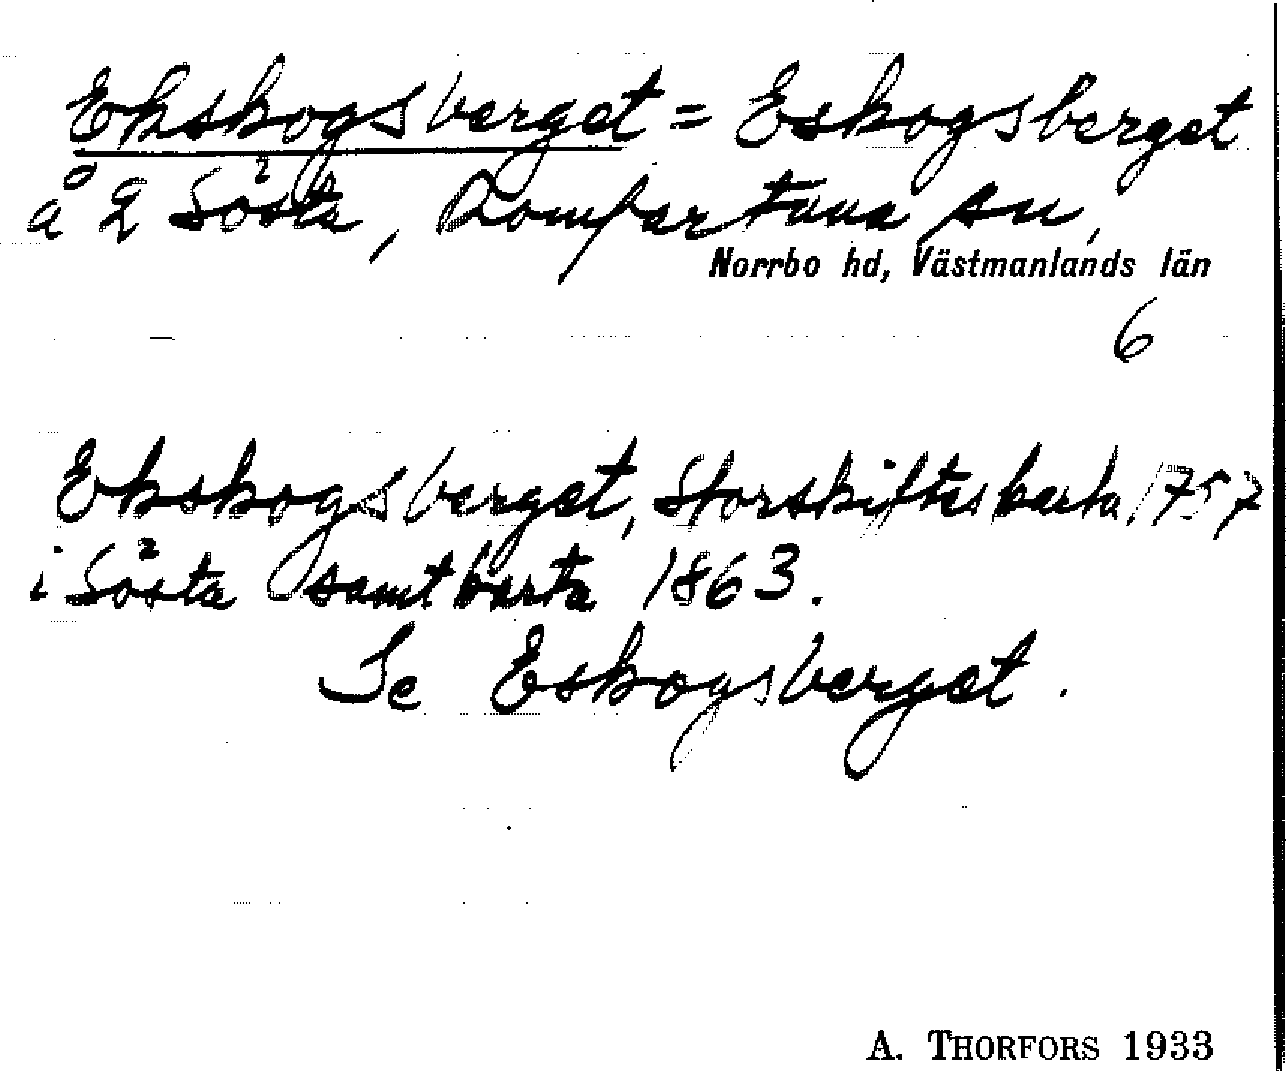 Ekskogsberget = Eskogsberget
å 2 Sösta, Romfartuna sn,
Norrbo hd, Västmanlands län
6
Ekskogsberget, Storskifteskarta 1757
i Sösta samt karta 1863.
Se Eskogsberget.
A. THORFORS 1933